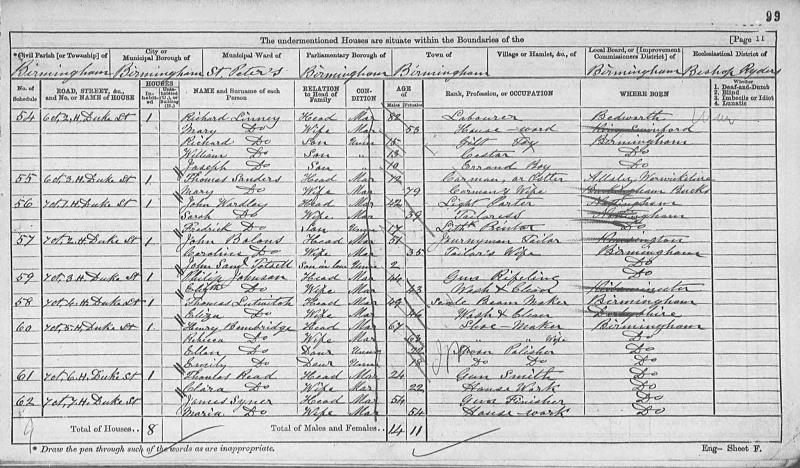 99
The undermentioned Houses are situate within the Boundaries of the [Page 11
*Civil Parish [or Township] of City or Municipal Borough of Municipal Ward of Parliamentary Borough of Town of Village or Hamlet, &c., of Local Board, or [Improvement Commissioners District] of Ecclesiastical District of
Birmingham Birmingham St Peter's Birmingham Birmingham Birmingham Bishop Ryders
No. of Schedule ROAD, STREET, &c., and No. or NAME of HOUSE HOUSES Inhabited Uninhabited (U.), or Building (B.) NAME and Surname of each Person RELATION to Head of Family CONDITION AGE Males Females Rank, Profession, or OCCUPATION WHERE BORN Whether 1. Deaf-and-Dumb 2. Blind 3. Imbecile or Idiot 4. Lunatic
54 6 ct. 2 H. Duke St 1 Richard Linney Head Mar 82 Labourer Bedworth
Mary Do Wife Mar 53 House-word
Richard Do Son Unm 15 Birmingham
William Do Son " 13 Castor Do
Joseph Do Son 10 Errand Boy Do
55 6 ct. 3 H. Duke St 1 Thomas Sanders Head Mar 72 Carman, or Warwickshire
Mary Do Wife Mar 79 Carman's Wife Bucks
56 7 ct. 1 H. Duke St 1 John Wardley Head Mar 42 Light Porter Nottingham
Sarah Do Wife Mar 39 Tailoress Nottingham
Fredrick Do Son Unm 17 Do
57 7 ct. 2 H. Duke St 1 John Head Mar 51 Journyman Tailor
Caroline Do Wife Mar 35 Tailor's Wife Birmingham
John Saml Son in law Unm 2 Do
59 7 ct. 3 H. Duke St 1 Philip Johnson Head Mar 44 Gun Do
Do Wife Mar 43 Wash & Clean
58 7 ct. 4 H. Duke St 1 Thomas Head Mar 49 Scale Beam Maker Birmingham
Eliza Do Wife Mar 46 Wash & Clean
60 7 ct. 5 H. Duke St 1 Henry Head Mar 67 Shoe-Maker Birmingham
Rebeca Do Wife Mar 63 " " Wife Do
Ellen Do Daur Unm Spoon Polisher Do
Emily Do Daur Unm 18 Do Do Do
61 7 ct. 6 H. Duke St 1 Thomas Read Head Mar 24 Gun Smith Do
Clara Do Wife Mar 22 House Work Do
62 7 ct. 7 H. Duke St 1 James Syner Head Mar 54 Gun Finisher Do
Maria Do Wife Mar 54 House-work Do
9 Total of Houses.. 8 Total of Males and Females.. 14 11
* Draw the pen through such of the words as are inappropriate. Eng—Sheet F.